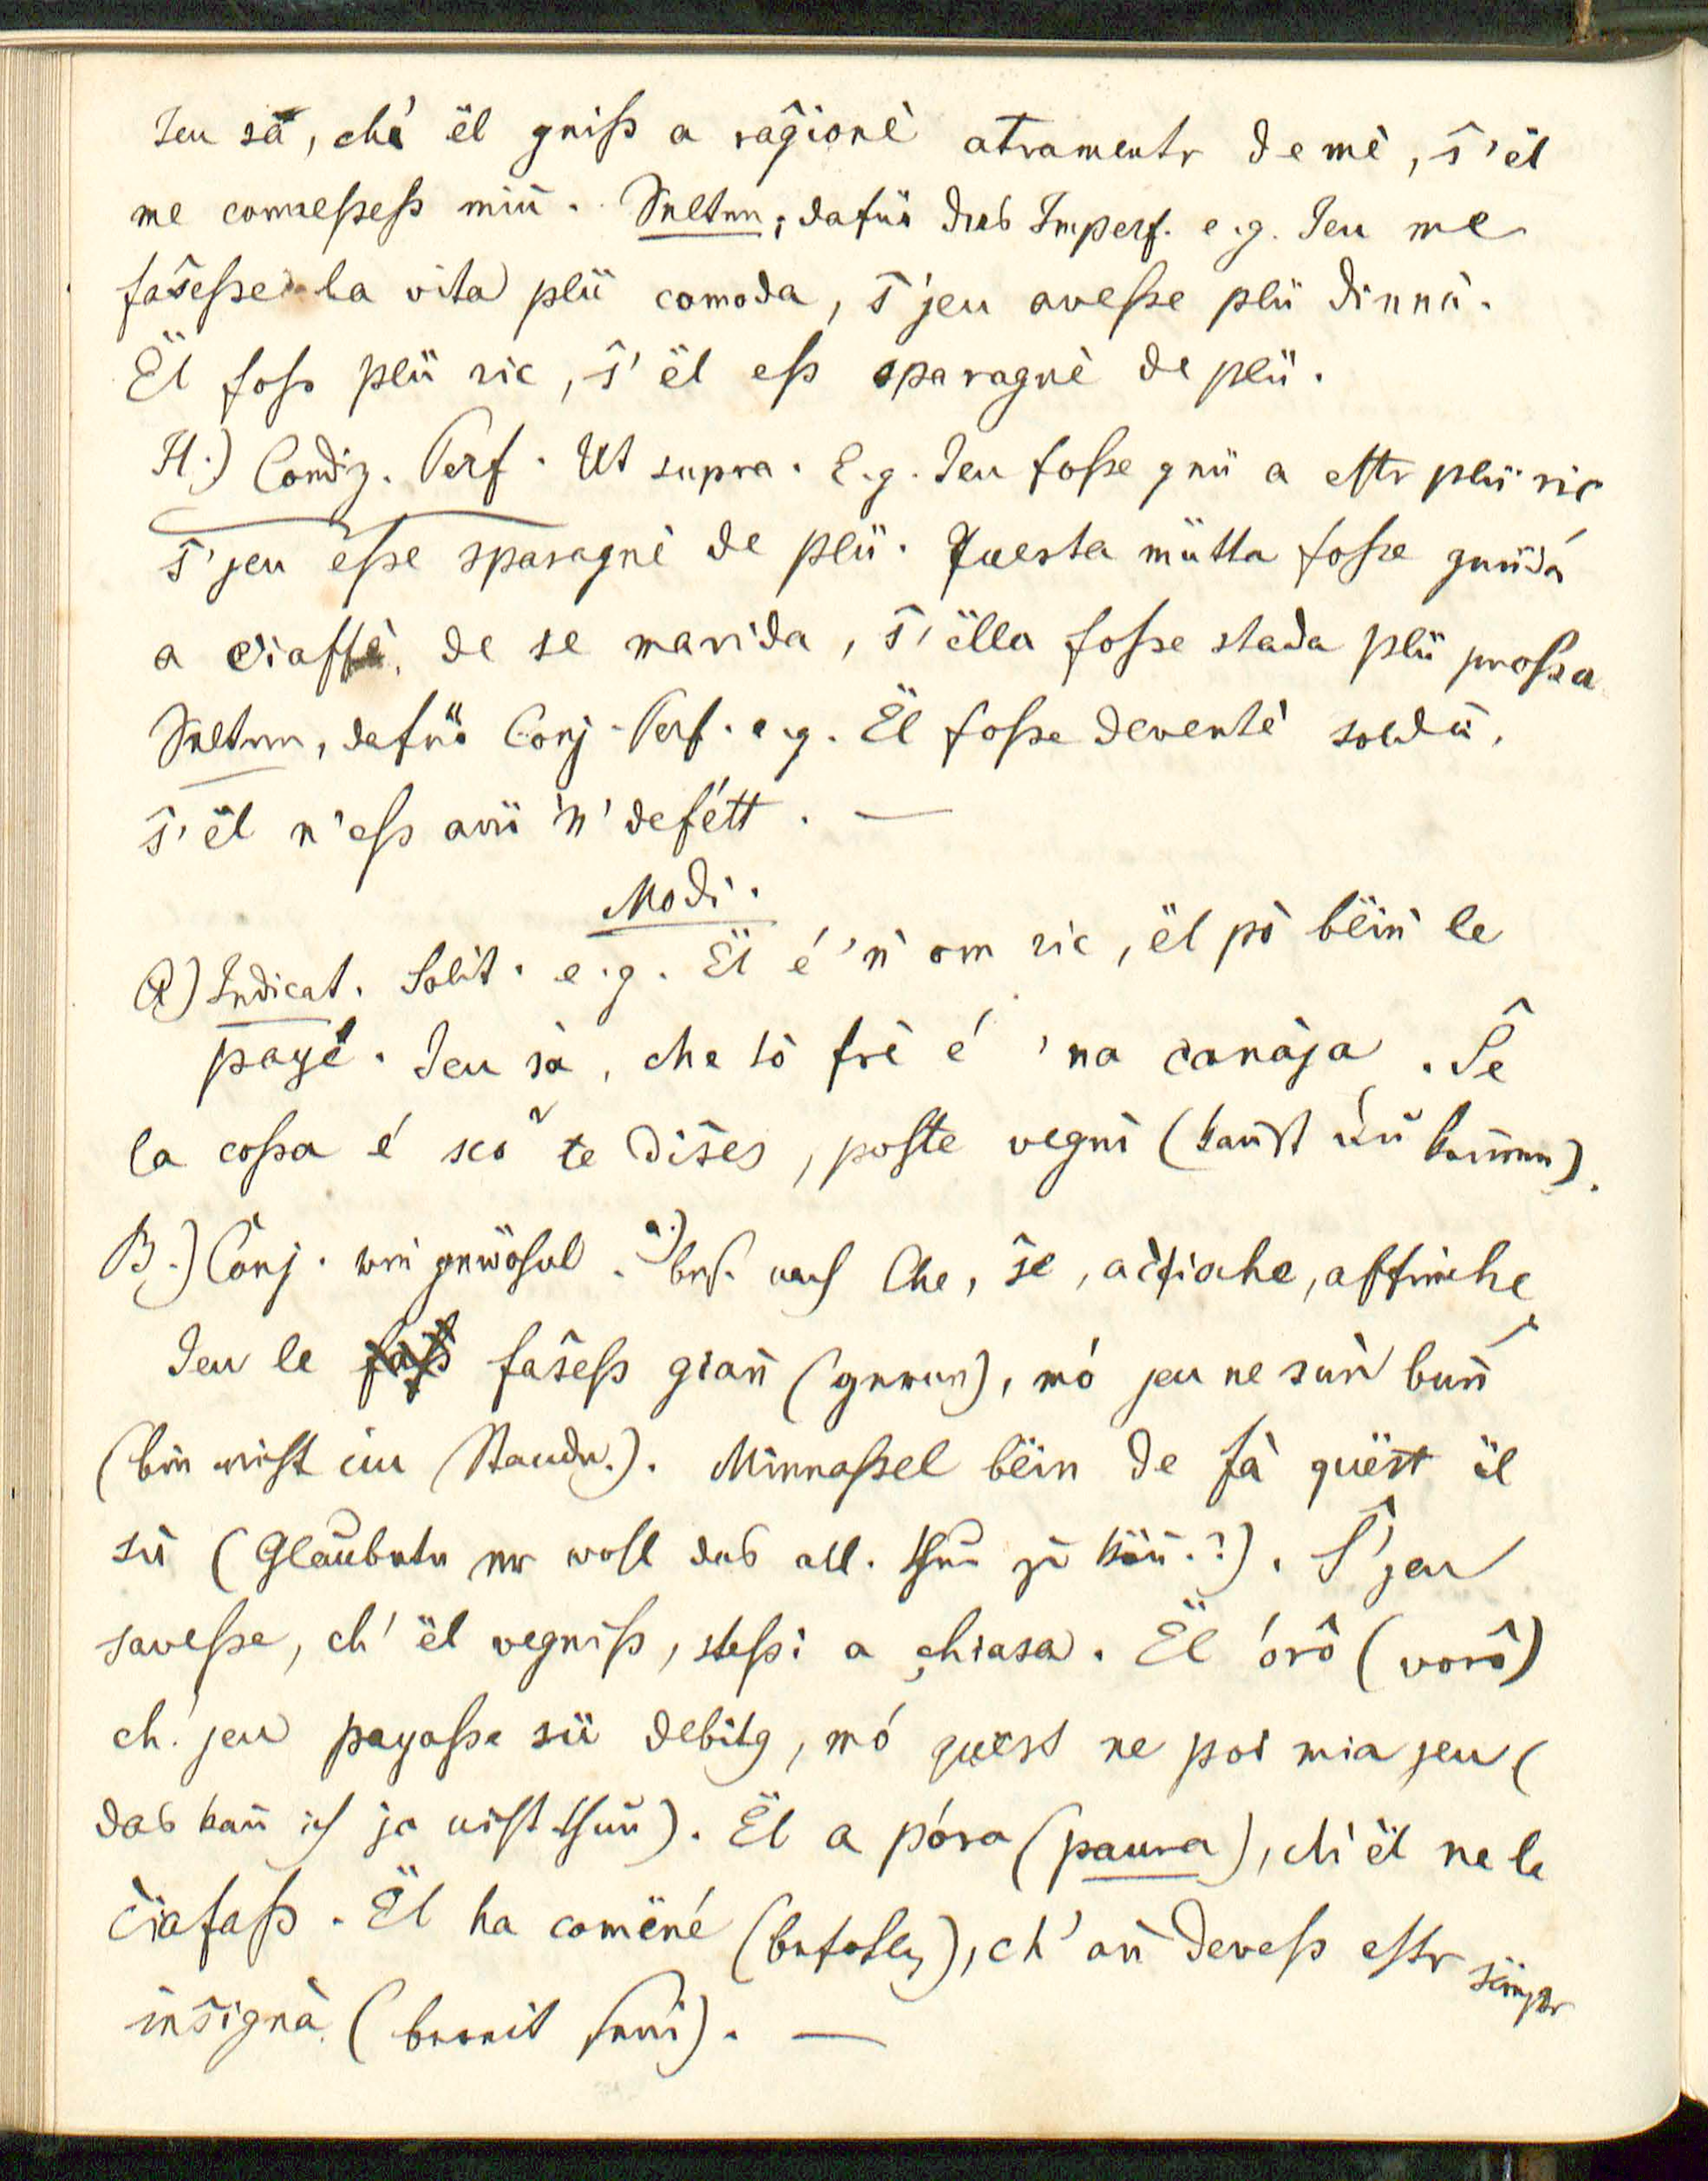 Jeu sà, ché ël gniss a raĝionè atramentr de mè, ŝ'ël
me conressess miñ. Selten; dafür das Imperf. e.g. Jeu me
faŝesse la vita plü comoda, ŝ'jeu avesse plü dinná.
Ël foss plü ric, ŝ'ël ess sparagnè de plü.
H.) Condiz. Perf. Ut supra. E.g. Jeu fosse gnü a esstr plü ric
ŝ'jeu esse sparagnè de plü. Questa mütta fosse gnüda
a ciaffè, de se marida, ŝ'ëlla fosse stada plü prossa
Selten, dafür Conj. Perf. e.g. Ël fosse deventè soldä,
ŝ'ël n'ess avü 'ǹ' defétt. —
Modi.
A) Indicat. Solit. e.g. Ël é 'ǹ om ric, ël pò bëiǹ le
payè. Jeu sà, che tò frè é 'na canàja. Ŝe
la cossa é sco te diŝes, poste vegnì (kañst du kommen).
B.) Conj. wie gewöhnl. a.) bes. nach Che, ŝe, acĉioche, affinche
Jeu le faŝess gian̄ (gerne), mó jeu ne suǹ bun̄
(bin nicht im Stande.). Minnassel bëin de fà quëst ël
sü (Glaubete er wohl das all. thun zu kön̄.?). Ŝ'jeu
savesse, ch'ël vegniss, stessi a chiasa. Ël órô (vorô)
ch'jeu payasse sü debitg, mó quëst ne poi mia jeu (
das kan̄ ich ja nicht thun̄). Ël a póra (paura), ch'ël ne le
ĉiafass. Ël ha comëné (befohlen), ch'an̄ devess esstr sëmpr
inŝignà (bereit sein). —